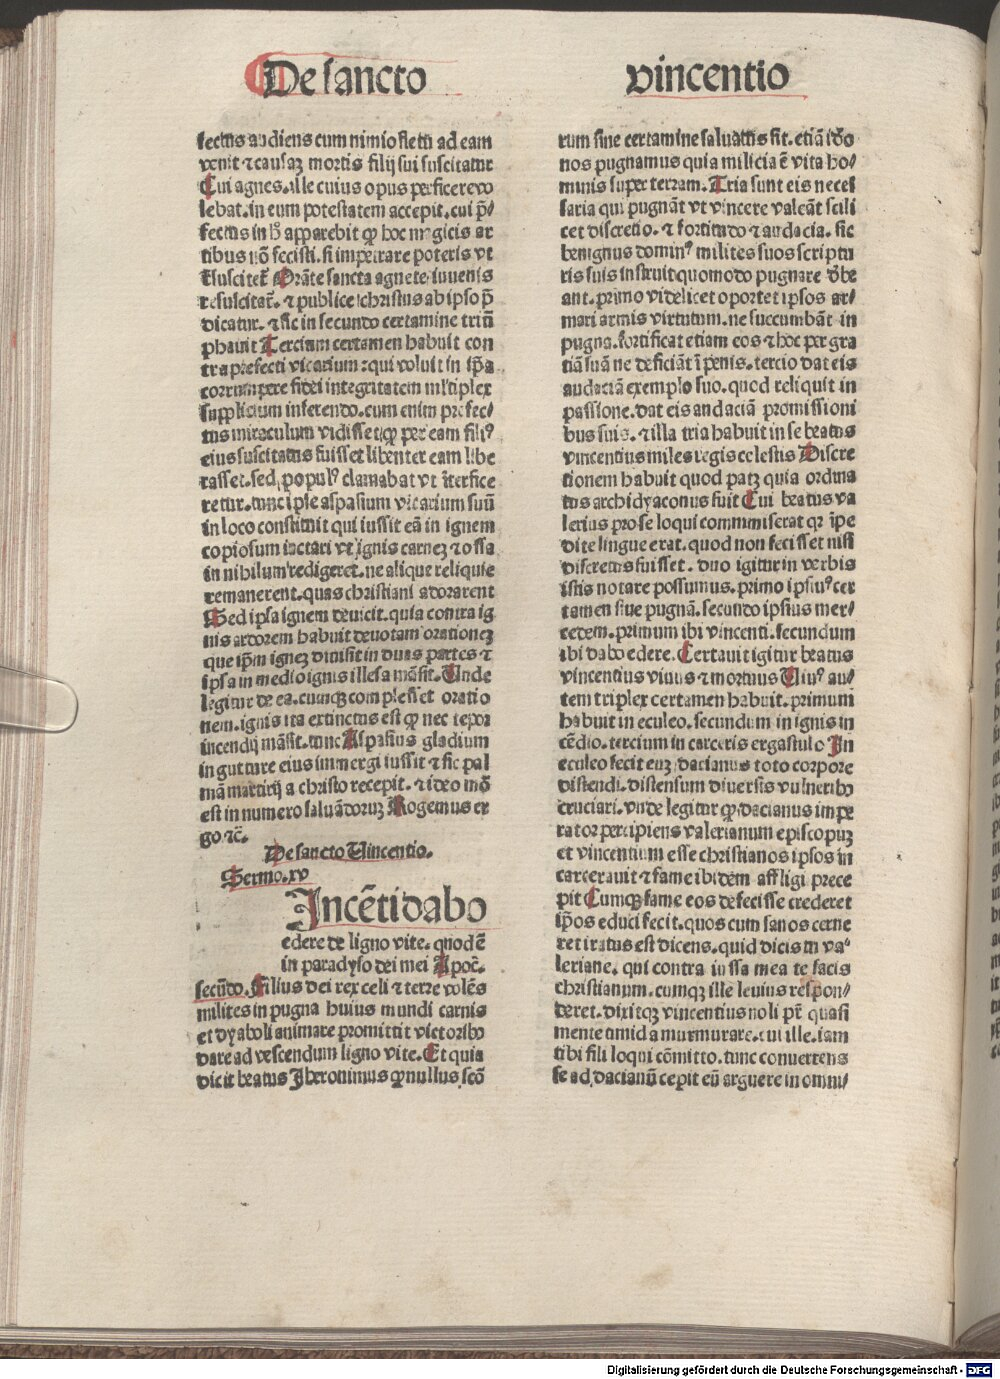 De sancto vincentio
fectus audiens cum nimio fletu ad eam
venit ⁊ causaꝫ mortis filij sui suscitatur
Cui agnes. ille cuius opus perficere vo
lebat. in eum potestatem accepit. cui p̄-
fectus in hͦ apparebit ꝙ hoc magicis ar
tibus nō fecisti. si impetrare poteris vt
resuscitet᷑ Orāte sancta agnete iuuenis
resuscitat᷑. ⁊ publice christus ab ipso p̄
dicatur. ⁊ sic in secundo certamine triū
phauit Tercium certamen habuit con
tra prefecti vicarium: qui voluit in ip̄a
corrumpere fidei integritatem mltiplex
supplicium inferendo. cum enim prefec-
tus miraculum vidisset ꝙ per eam filiꝰ
eius suscitatus fuisset libenter eam libe
rasset. sed populꝰ clamabat vt īterfice
retur. tunc ipse aspasium vicarium suū
in loco constituit qui iussit eā in ignem
copiosum iactari vt ignis carneꝫ ⁊ ossa
in nihilum redigeret. ne alique reliquie
remanerent. quas christiani adorarent
Sed ipsa ignem deuicit. quia contra ig
nis ardorem habuit deuotam orationeꝫ
que ip̄m igneꝫ diuisit in duas partes ⁊
ipsa in medio ignis illesa māsit. Unde
legitur de ea. cumqꝫ complesset oratio
nem. ignis ita extinctus est ꝙ nec tepor
incendij māsit. tunc Aspasius gladium
in gutture eius immergi iussit ⁊ sic pal
mā martirij a christo recepit. ⁊ ideo mō
est in numero saluādoruꝫ Rogemus er
go ⁊c̄.
De sancto Uincentio.
Sermo. xv
Incēti dabo
edere de ligno vite. quod ē
in paradyso dei mei Apoc̄.
secūdo. Filius dei rex celi ⁊ terre volēs
milites in pugna huius mundi carnis
et dyaboli animare promittit victoribꝰ
dare ad vescendum ligno vite. Et quia
dicit beatus Iheronimus ꝙ nullus scō
rum sine certamine saluatus sit. etiā iō
nos pugnamus quia milicia ē vita ho-
minis super terram. Tria sunt eis neces
saria qui pugnāt vt vincere valeāt scili
cet discretio. ⁊ fortitudo ⁊ audacia. sic
benignus dominꝰ milites suos scriptu
ris suis instruit quomodo pugnare debe
ant. primo videlicet oportet ipsos ar-
mari armis virtutum. ne succumbāt in
pugna. fortificat etiam eos ⁊ hoc per gra
tiā suā ne deficiāt ī penis. tercio dat eis
audaciā exemplo suo. quod reliquit in
passione. dat eis audaciā promissioni
bus suis. ⁊ illa tria habuit in se beatus
vincentius miles regis celestis Discre
tionem habuit quod patꝫ quia ordina
tus archidyaconus fuit Cui beatus va
lerius pro se loqui commiserat qꝛ īpe
dite lingue erat. quod non fecisset nisi
discretus fuisset. duo igitur in verbis
istis notare possumus. primo ipsiuꝰ cer
tamen siue pugnā. secundo ipsius mer-
cedem. primum ibi vincenti. secundum
ibi dabo edere. Certauit igitur beatus
vincentius viuus ⁊ mortuus Uiuꝰ au-
tem triplex certamen habuit. primum
habuit in eculeo. secundum in ignis in
cēdio. tercium in carceris ergastulo In
eculeo fecit euꝫ dacianus toto corpore
distendi. distensum diuersis vulneribꝰ
cruciari. vnde legitur ꝙ dacianus impe
rator percipiens valerianum episcopuꝫ
et vincentium esse christianos ipsos in
carcerauit ⁊ fame ibidem affligi prece
pit Cumqꝫ fame eos defecisse crederet
ip̄os educi fecit. quos cum sanos cerne
ret iratus est dicens. quid dicis tu va-
leriane. qui contra iussa mea te facis
christianum. cumqꝫ ille leuius respon-
deret. dixitqꝫ vincentius noli pr̄ quasi
mente timida murmurare. cui ille. iam
tibi fili loqui cōmitto. tunc conuertens
se ad dacianū cepit eū arguere in omni-
Digitalisierung gefördert durch die Deutsche Forschungsgemeinschaft - DFG